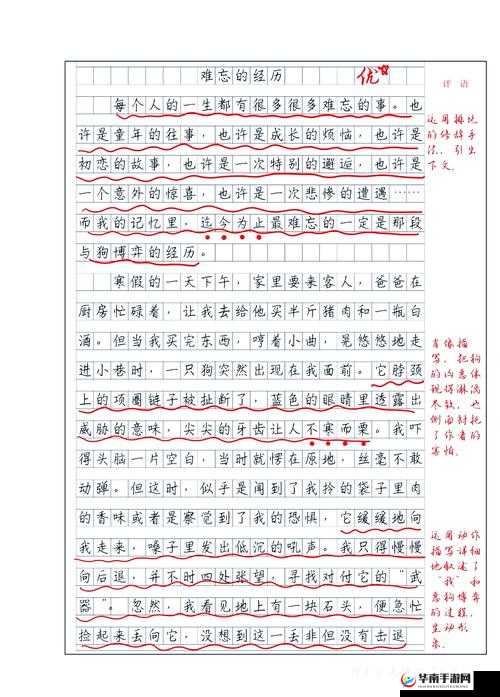 难忘的经历
优
评语
每个人的一生都有很多很多难忘的事。也
许是童年的往事，也许是成长的烦恼，也许是
初恋的故事，也许是一次特别的邂逅，也许是
一个意外的惊喜，也许是一次悲惨的遭遇……
而我的记忆里，迄今为止最难忘的一定是那段
与狗博弈的经历。
运用排比
的修辞手
法，引出
下文。
寒假的一天下午，家里要来客人，爸爸在
厨房忙碌着，让我去给他买半斤猪肉和一瓶白
酒。但当我买完东西，哼着小曲，晃悠悠地走
进小巷时，一只狗突然出现在我面前。它脖颈
上的项圈链子被扯断了，蓝色的眼睛里透露出
威胁的意味，尖尖的牙齿让人不寒而栗。我吓
得头脑一片空白，当时就愣在原地，丝毫不敢
动弹。但这时，似乎是闻到了我拎的袋子里肉
的香味或者是察觉到了我的恐惧，它缓缓地向
我走来，嗓子里发出低沉的吼声。我只得慢慢
向后退，并不时四处张望，寻找对付它的“武
器”。忽然，我看见地上有一块石头，便急忙
捡起来丢向它，没想到这一丢非但没有击退
肖像描
写，把狗
的凶恶体
现得淋漓
尽致，也
侧面衬托
了作者的
害怕。
运用动作
描写详细
地叙述了
“我”和
恶狗博弈
的过程，
生动形
象。
华南手游网